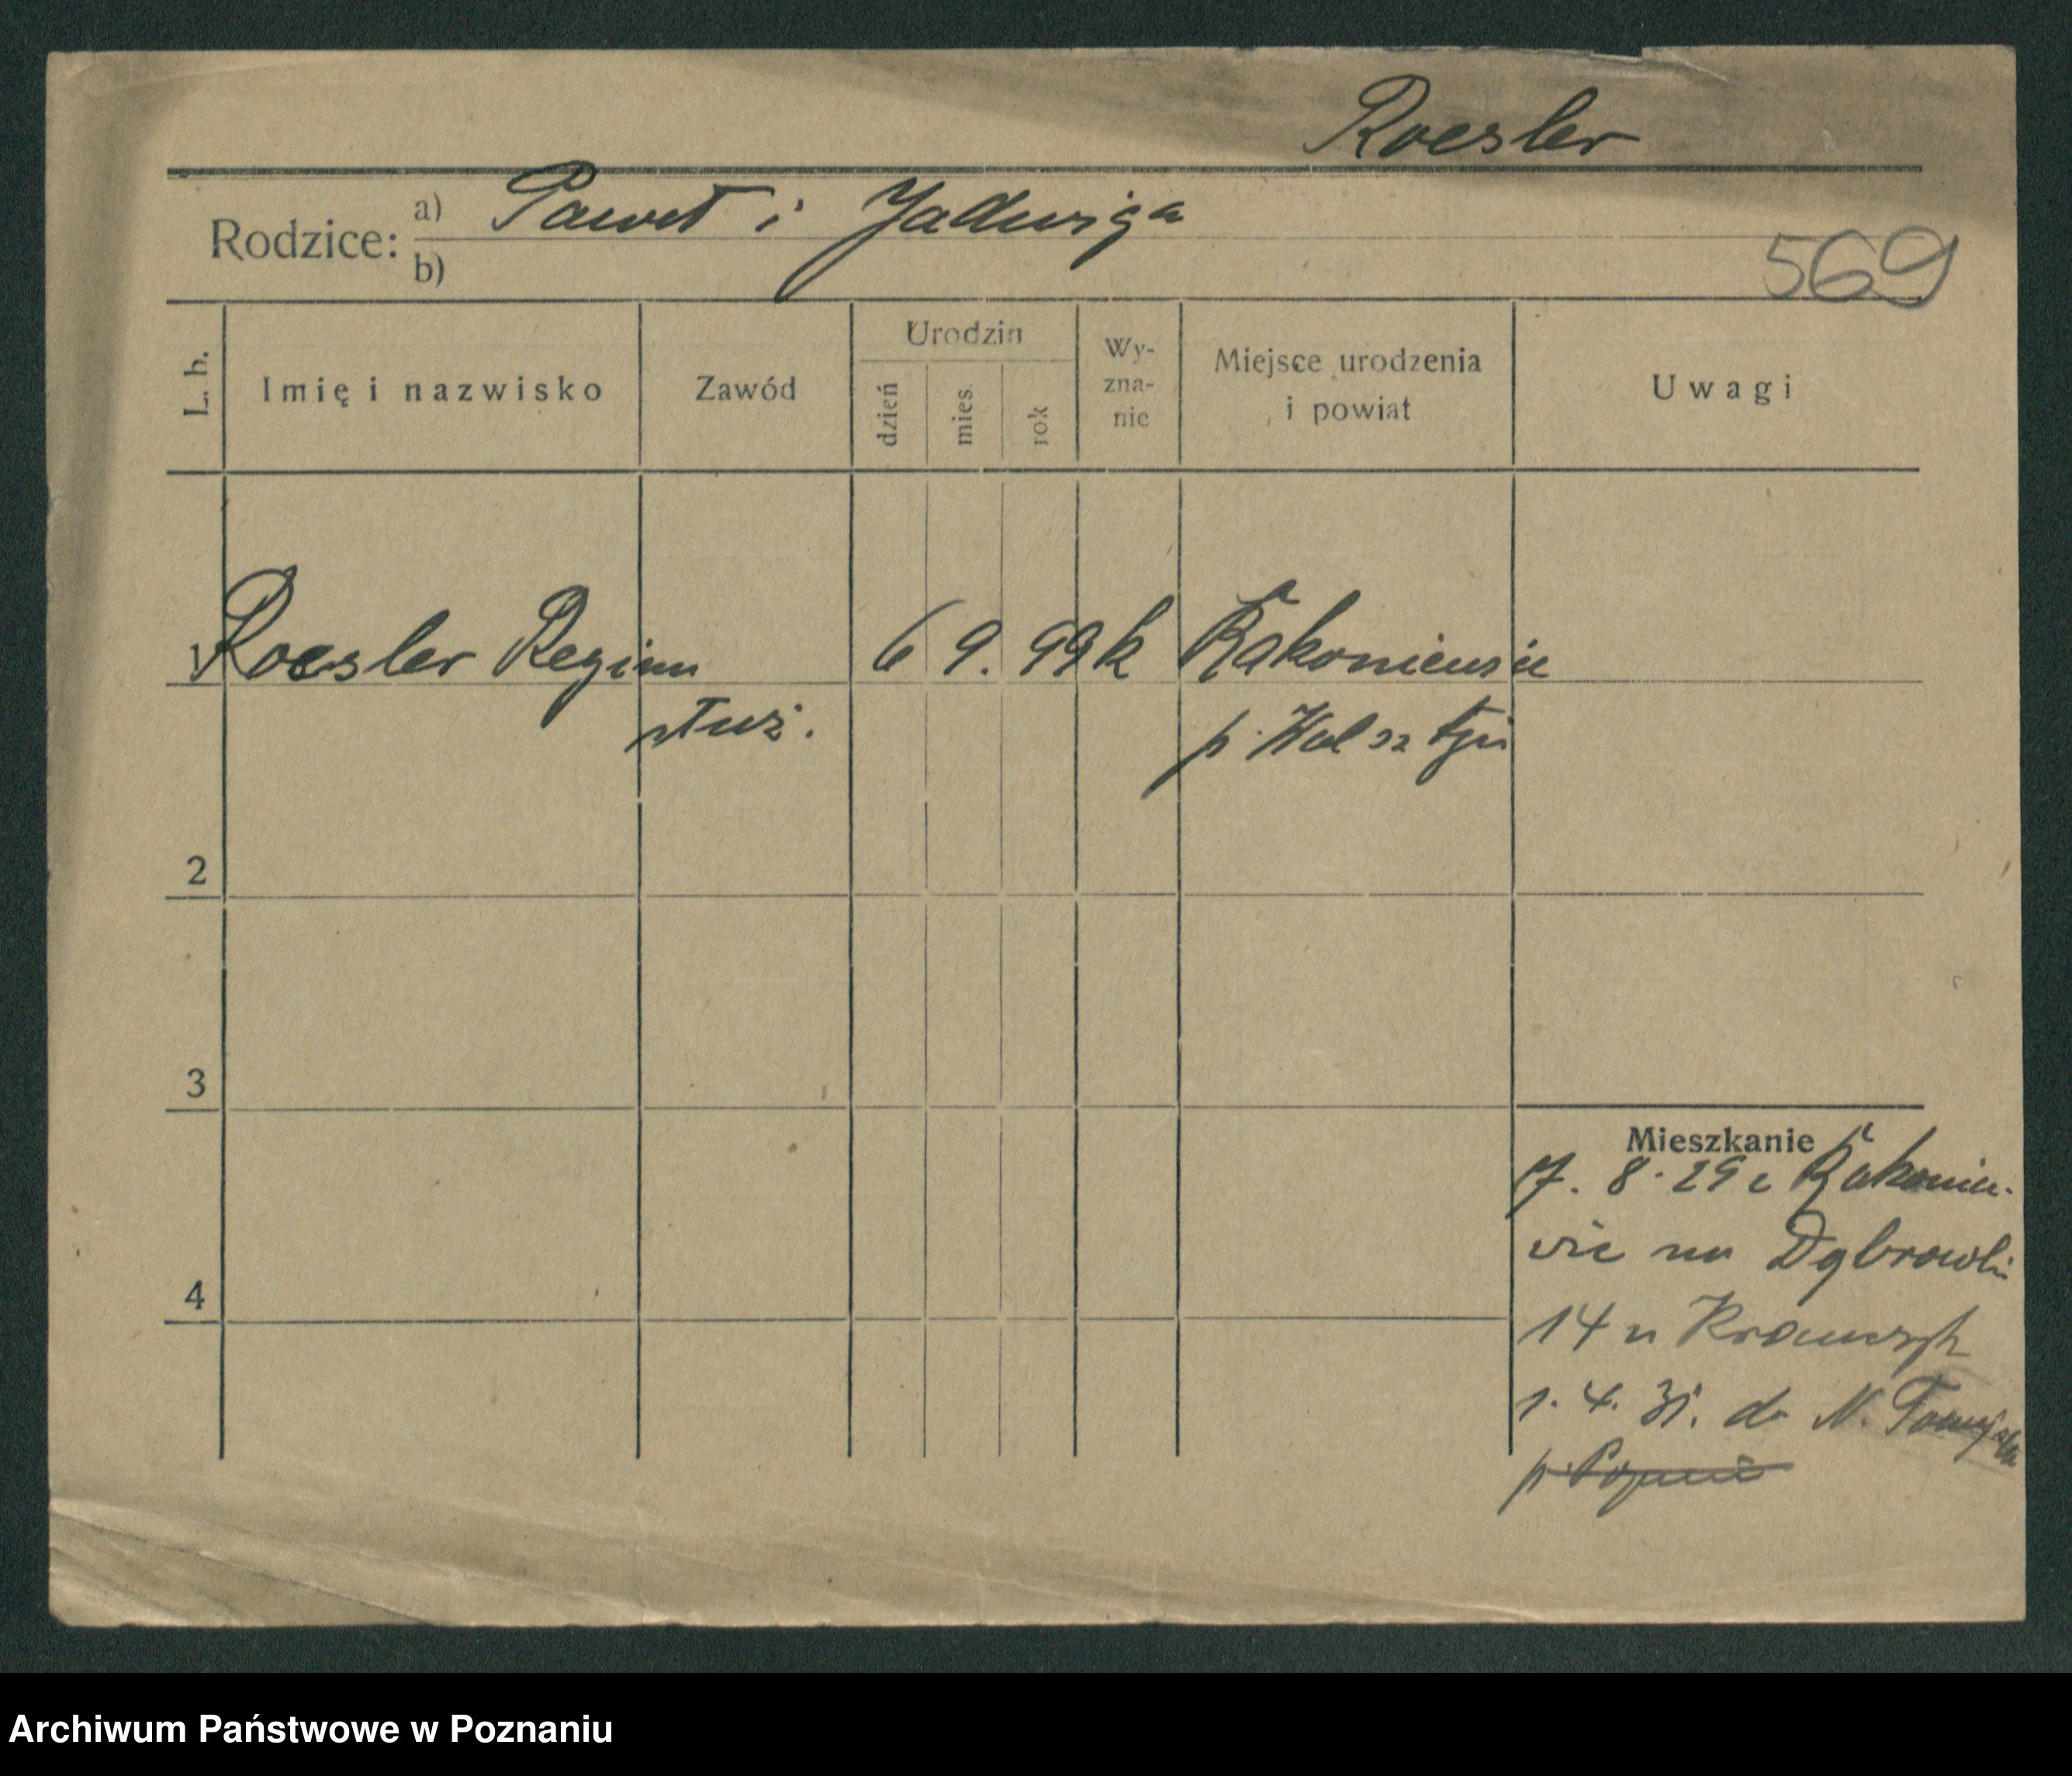 Roesler
Rodzice: a) Paweł i Jadwiga
b)
569
L. b.
Imię i nazwisko
Zawód
Urodzin
dzień
mies.
rok
Wy-
zna-
nie
Miejsce urodzenia
i powiat
Uwagi
1 Roesler Regina 6 9. 99 k Rakoniewice
służ. p. Wolsztyn
2
3
4
Mieszkanie
7. 8. 29 z Rakonie-
wic na Dąbrowski
14 u
1. 4. 31. do N. Tomyśla
p.
Archiwum Państwowe w Poznaniu